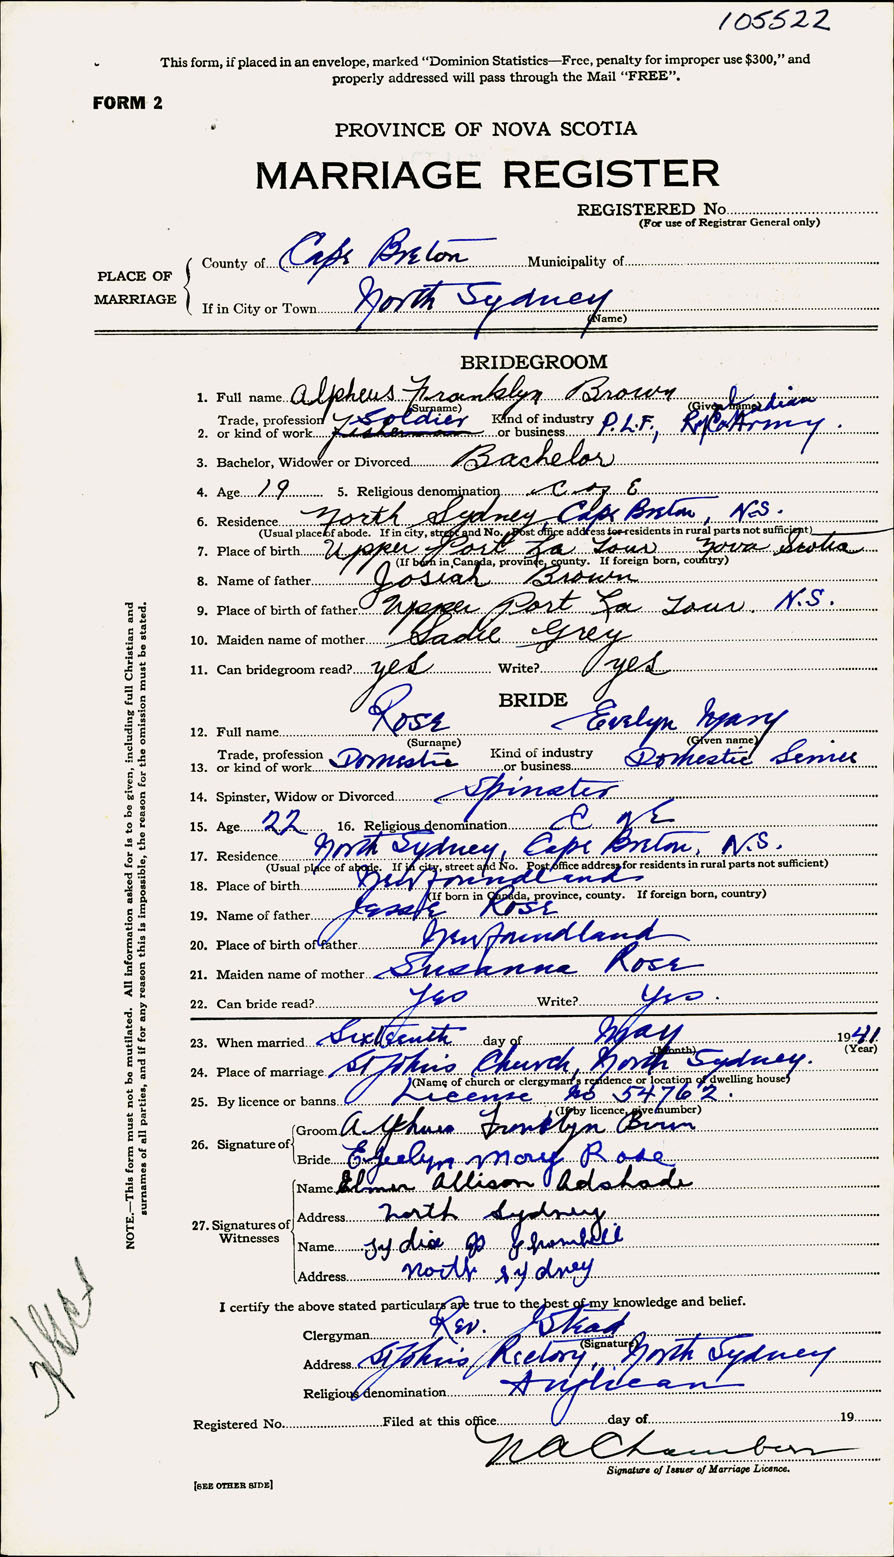 105522
This form, if placed in an envelope, marked “Dominion Statistics—Free, penalty for improper use $300,” and
properly addressed will pass through the Mail “FREE”.
FORM 2
PROVINCE OF NOVA SCOTIA
MARRIAGE REGISTER
REGISTERED No.
(For use of Registrar General only)
PLACE OF MARRIAGE
County of Cape Breton Municipality of
If in City or Town North Sydney
(Name)
BRIDEGROOM
1. Full name Alpheus Franklyn Brown
(Surname) (Given name)
Trade, profession Soldier Kind of industry
2. or kind of work fisherman or business P.L.F., Army.
3. Bachelor, Widower or Divorced Bachelor
4. Age 19 5. Religious denomination C of E
6. Residence North Sydney, Cape Breton, N.S.
(Usual place of abode. If in city, street and No. Post office address for residents in rural parts not sufficient)
7. Place of birth Upper Port La Tour Nova Scotia
(If born in Canada, province, county. If foreign born, country)
8. Name of father Josiah Brown
9. Place of birth of father Upper Port La Tour. N.S.
10. Maiden name of mother Sadie Grey
11. Can bridegroom read? yes Write? yes
BRIDE
12. Full name Rose Evelyn Mary
(Surname) (Given name)
Trade, profession Kind of industry
13. or kind of work Domestic or business Domestic Service
14. Spinster, Widow or Divorced Spinster
15. Age 22 16. Religious denomination C of E
17. Residence North Sydney, Cape Breton, N.S.
(Usual place of abode. If in city, street and No. Post office address for residents in rural parts not sufficient)
18. Place of birth Newfoundland
(If born in Canada, province, county. If foreign born, country)
19. Name of father Jessie Rose
20. Place of birth of father Newfoundland
21. Maiden name of mother Susanna Rose
22. Can bride read? Yes Write? Yes.
23. When married Sixteenth day of May 1941
(Month) (Year)
24. Place of marriage St John's Church, North Sydney.
(Name of church or clergyman's residence or location of dwelling house)
25. By licence or banns License no 54762.
(If by licence, give number)
26. Signature of
Groom Alpheus Franklyn Brown
Bride Evelyn Mary Rose
27. Signatures of Witnesses
Name Elmer Allison Adshade
Address North Sydney
Name Lydia
Address North Sydney
I certify the above stated particulars are true to the best of my knowledge and belief.
Clergyman Rev. Stead
(Signature)
Address St John's Rectory, North Sydney
Religious denomination Anglican
Registered No. Filed at this office day of 19
N A Chambers
Signature of Issuer of Marriage Licence.
[SEE OTHER SIDE]
NOTE.—This form must not be mutilated. All information asked for is to be given, including full Christian and
surnames of all parties, and if for any reason this is impossible, the reason for the omission must be stated.